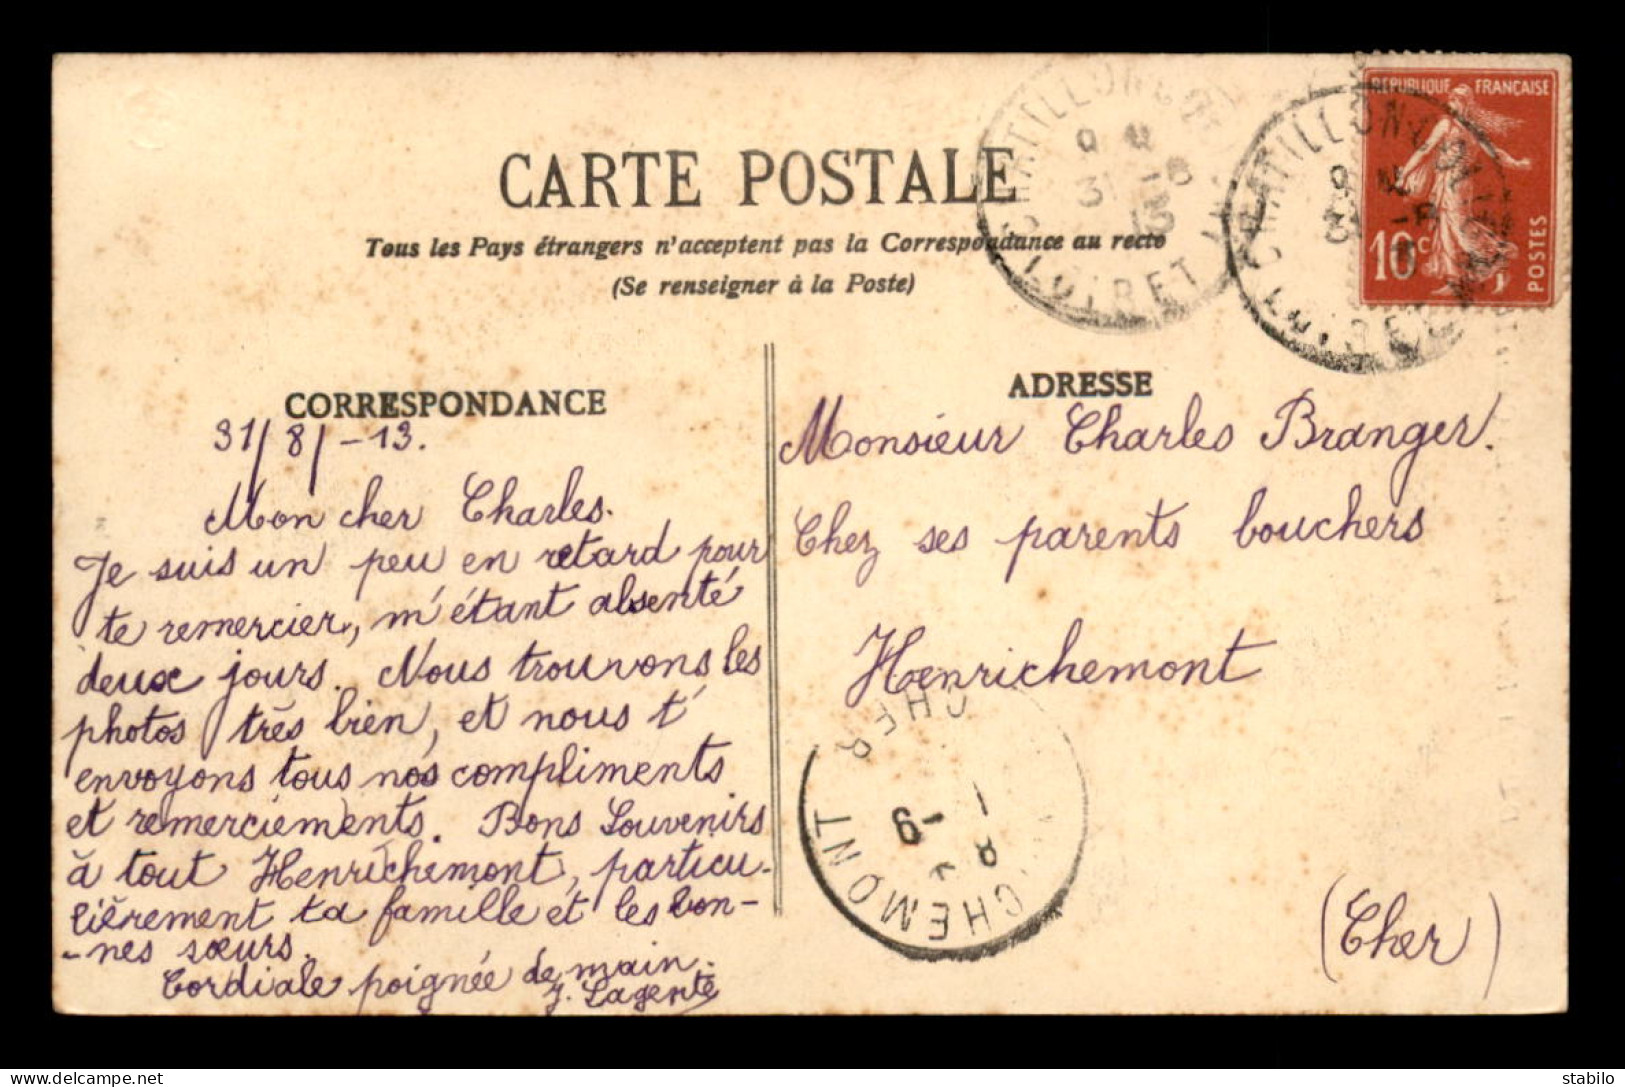 CARTE POSTALE
Tous les Pays étrangers n'acceptent pas la Correspondance au recto
(Se renseigner à la Poste)
REPUBLIQUE FRANÇAISE
10c
POSTES
CHATILLON
31 -8
13
LOIRET
CHATILLON
LOIRET
CORRESPONDANCE
31/8/-13.
Mon cher Charles.
Je suis un peu en retard pour
te remercier, m'étant absenté
deux jours. Nous trouvons les
photos très bien, et nous t'
envoyons tous nos compliments
et remerciements. Bons Souvenirs
à tout Henrichemont, particu-
lièrement ta famille et les bon-
-nes sœurs.
Cordiale poignée de main.
J. Lagente
ADRESSE
Monsieur Charles Branger.
Chez ses parents bouchers
Henrichemont
(Cher)
CHEMONT
CHER
stabilo